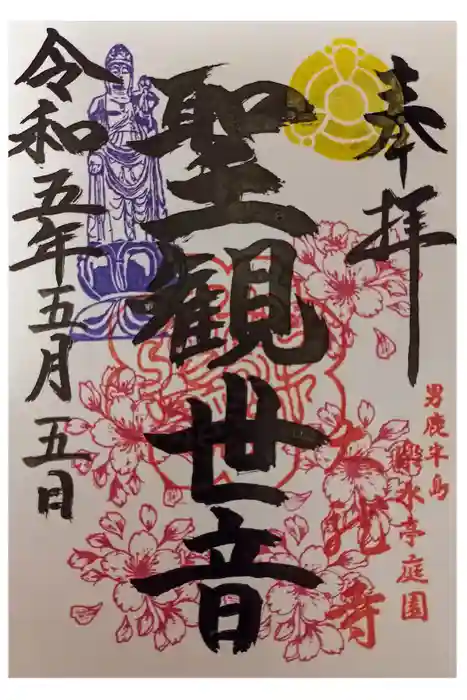 奉拝
男鹿半島
樂水亭庭園
大龍寺
聖観世音
令和五年五月五日